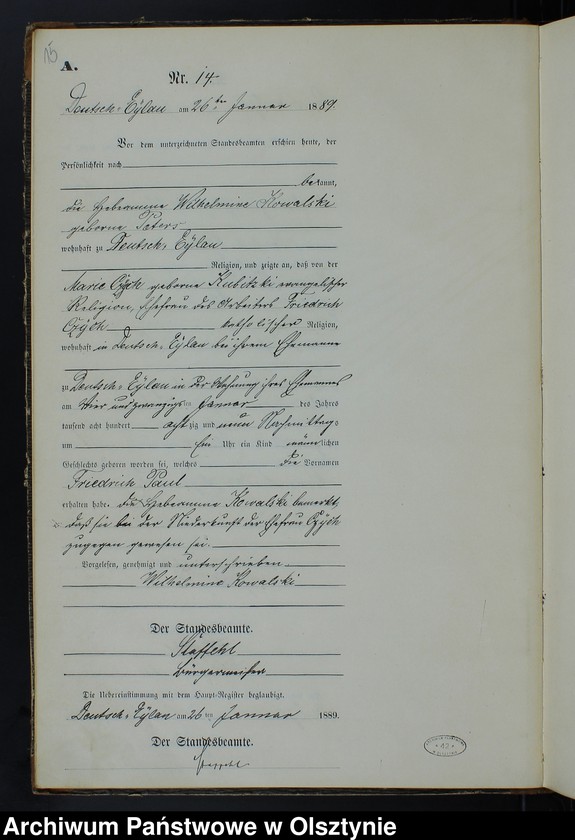 A.
Nr. 14.
Deutsch-Eylau am 26ten Januar 1889.
Vor dem unterzeichneten Standesbeamten erschien heute, der
Persönlichkeit nach
bekannt,
die Hebeamme Wilhelmine Kowalski
geborne Peters
wohnhaft zu Deutsch-Eylau
Religion, und zeigte an, daß von der
Marie Czÿch geborne Kubitzki evangelischer
Religion, Ehefrau des Arbeiters Friedrich
Czÿch katholischer Religion,
wohnhaft in Deutsch-Eylau bei ihrem Ehemanne
zu Deutsch-Eylau in der Wohnung ihres Ehemannes
am vier und zwanzigsten Januar des Jahres
tausend acht hundert achtzig und neun Nachmittags
um Ein Uhr ein Kind männlichen
Geschlechts geboren worden sei, welches die Vornamen
Friedrich Paul
erhalten habe. die Hebeamme Kowalski bemerkt,
daß sie bei der Niederkunft der Ehefrau Czÿch
zugegen gewesen sei.
Vorgelesen, genehmigt und unterschrieben
Wilhelmine Kowalski
Der Standesbeamte.
Staffehl
Bürgermeister
Die Uebereinstimmung mit dem Haupt-Register beglaubigt.
Deutsch-Eylau am 26ten Januar 1889.
Der Standesbeamte.
Staffehl
* 42 *
Archiwum Państwowe w Olsztynie